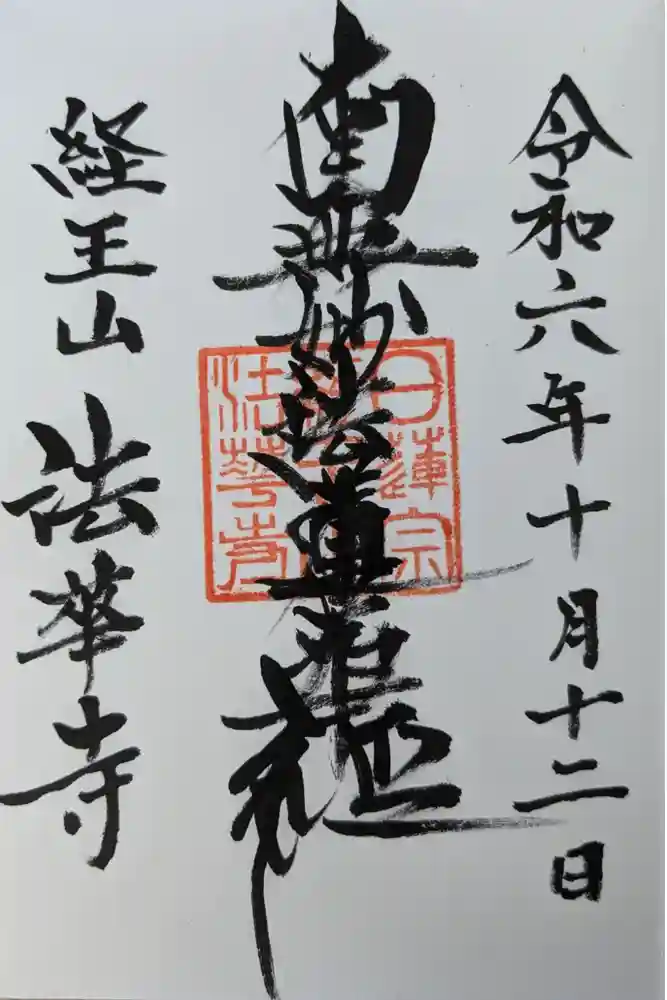 令和六年十月十二日
南無妙法蓮華経
日蓮宗
法華寺
経王山 法華寺